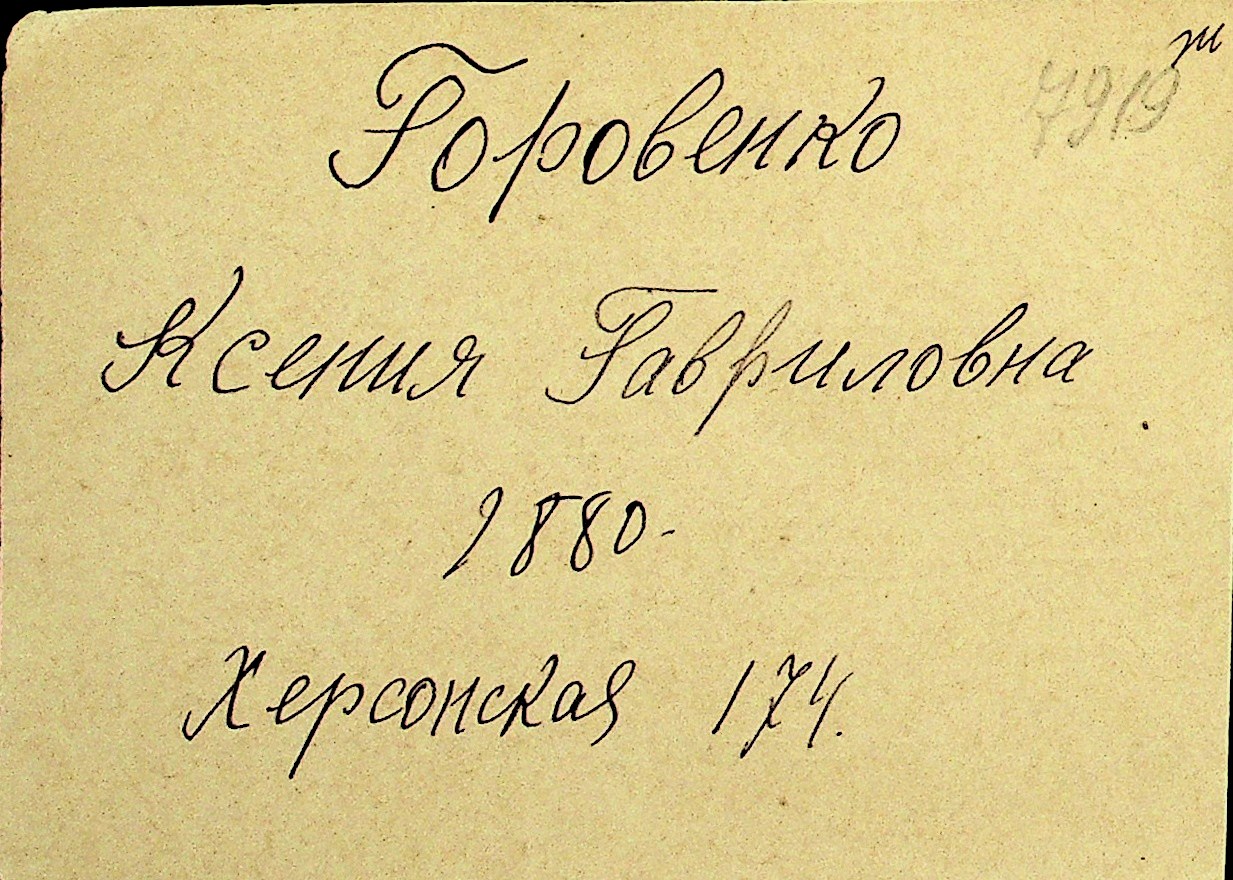 7919
Горовенко
Ксения Гавриловна
1880-
Херсонская 174.